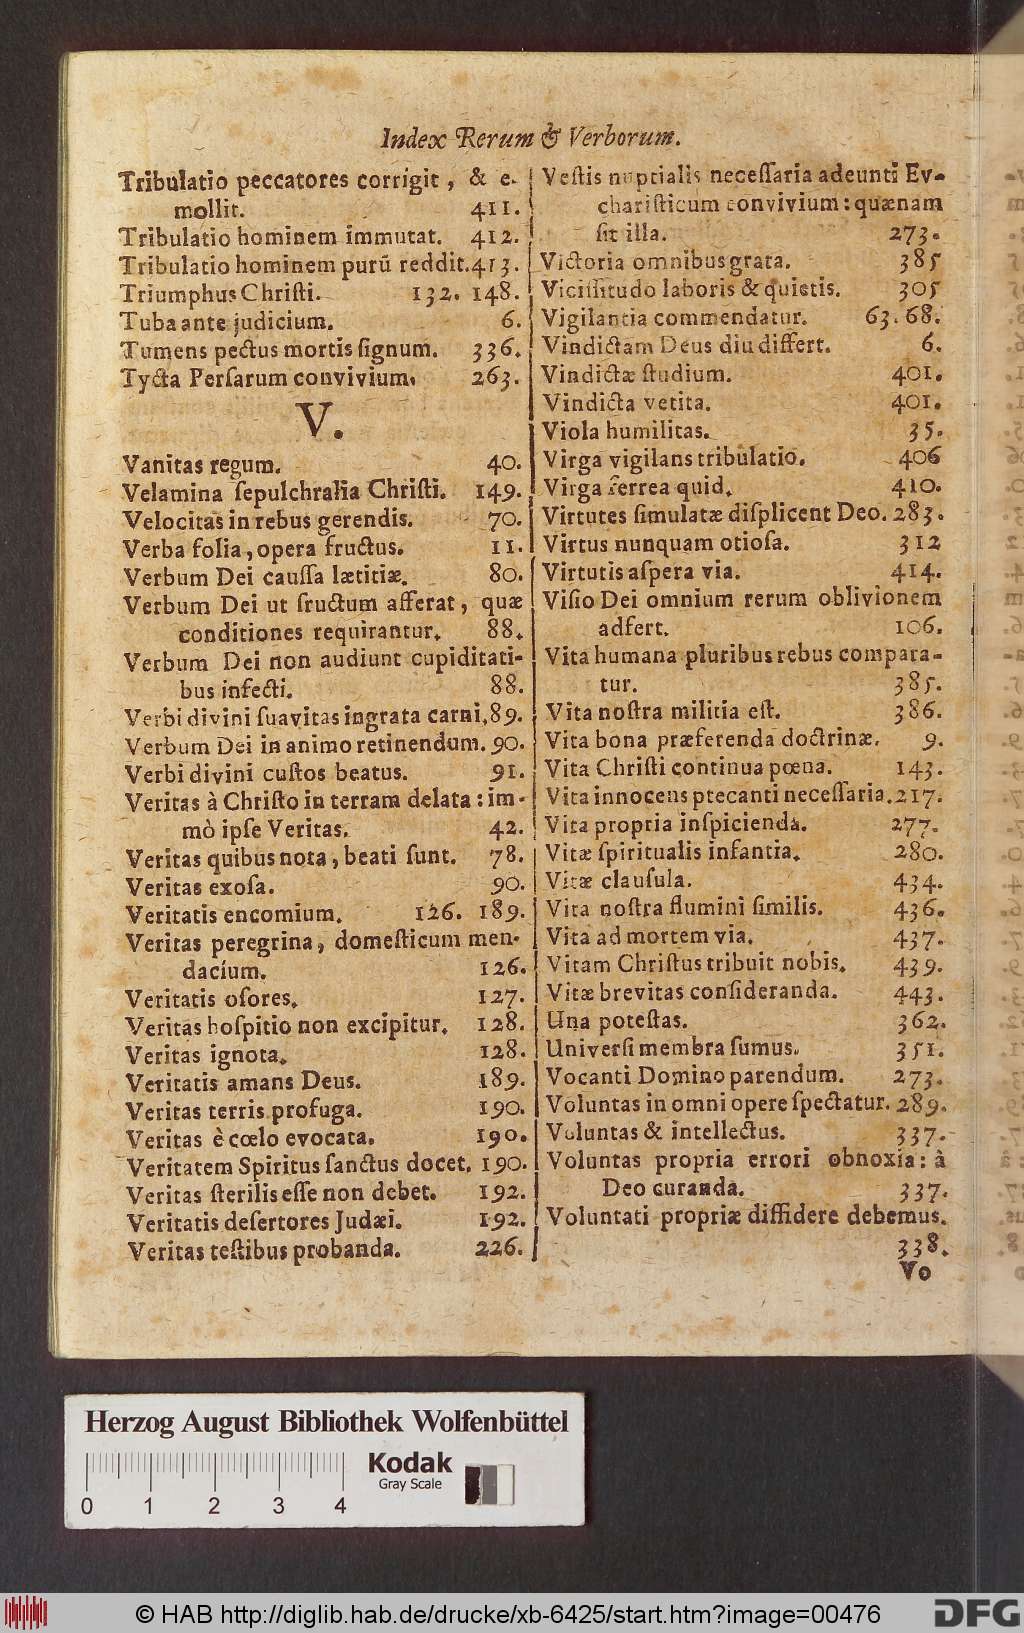 Index Rerum & Verborum.
Tribulatio peccatores corrigit, & e-
mollit. 411.
Tribulatio hominem immutat. 412.
Tribulatio hominem purū reddit. 413.
Triumphus Christi. 132. 148.
Tuba ante judicium. 6.
Tumens pectus mortis signum. 336.
Tycta Persarum convivium. 263.
V.
Vanitas regum. 40.
Velamina sepulchralia Christi. 149.
Velocitas in rebus gerendis. 70.
Verba folia, opera fructus. 11.
Verbum Dei caussa lætitiæ. 80.
Verbum Dei ut fructum afferat, quæ
conditiones requirantur. 88.
Verbum Dei non audiunt cupiditati-
bus infecti. 88.
Verbi divini suavitas ingrata carni, 89.
Verbum Dei in animo retinendum. 90.
Verbi divini custos beatus. 91.
Veritas à Christo in terram delata: im-
mò ipse Veritas. 42.
Veritas quibus nota, beati sunt. 78.
Veritas exosa. 90.
Veritatis encomium. 126. 189.
Veritas peregrina, domesticum men-
dacium. 126.
Veritatis osores. 127.
Veritas hospitio non excipitur. 128.
Veritas ignota. 128.
Veritatis amans Deus. 189.
Veritas terris profuga. 190.
Veritas è cœlo evocata. 190.
Veritatem Spiritus sanctus docet. 190.
Veritas sterilis esse non debet. 192.
Veritatis desertores Judæi. 192.
Veritas testibus probanda. 226.
Vestis nuptialis necessaria adeunti Ev-
charisticum convivium: quænam
sit illa. 273.
Victoria omnibus grata. 385
Vicissitudo laboris & quietis. 305
Vigilantia commendatur. 63. 68.
Vindictam Deus diu differt. 6.
Vindictæ studium. 401.
Vindicta vetita. 401.
Viola humilitas. 35.
Virga vigilans tribulatio. 406
Virga ferrea quid. 410.
Virtutes simulatæ displicent Deo. 283.
Virtus nunquam otiosa. 312
Virtutis aspera via. 414.
Visio Dei omnium rerum oblivionem
adfert. 106.
Vita humana pluribus rebus compara-
tur. 385.
Vita nostra militia est. 386.
Vita bona præferenda doctrinæ. 9.
Vita Christi continua pœna. 143.
Vita innocens precanti necessaria. 217.
Vita propria inspicienda. 277.
Vitæ spiritualis infantia. 280.
Vitæ clausula. 434.
Vita nostra flumini similis. 436.
Vita ad mortem via. 437.
Vitam Christus tribuit nobis. 439.
Vitæ brevitas consideranda. 443.
Una potestas. 362.
Universi membra sumus. 351.
Vocanti Domino parendum. 273.
Voluntas in omni opere spectatur. 289.
Voluntas & intellectus. 337.
Voluntas propria errori obnoxia: à
Deo curanda. 337.
Voluntati propriæ diffidere debemus.
338.
Vo
Herzog August Bibliothek Wolfenbüttel
Kodak
Gray Scale
0 1 2 3 4
© HAB http://diglib.hab.de/drucke/xb-6425/start.htm?image=00476
DFG